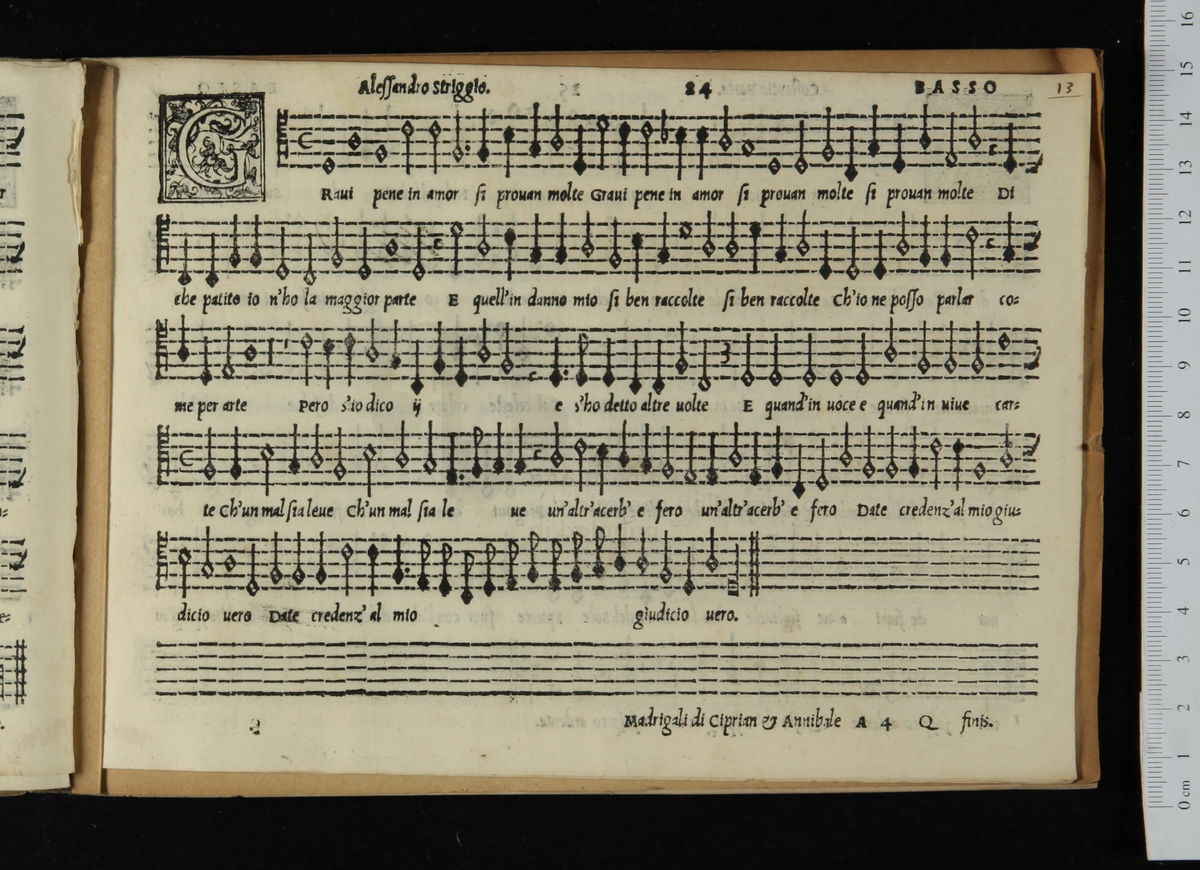 Alessandro Striggio. 24 BASSO 13
GRaui pene in amor si prouan molte Graui pene in amor si prouan molte si prouan molte Di
che patito io n'ho la maggior parte E quell'in danno mio si ben raccolte si ben raccolte Ch'io ne posso parlar co=
me per arte Pero s'io dico ij e s'ho detto altre uolte E quand'in uoce e quand'in uiue car=
te Ch'un mal sia leue Ch'un mal sia le ue un'altr'acerb' e fero un'altr'acerb' e fero Date credenz'al mio giu=
dicio uero Date credenz' al mio giudicio uero.
Madrigali di Ciprian & Annibale A 4 Q finis.
0 cm 1 2 3 4 5 6 7 8 9 10 11 12 13 14 15 16